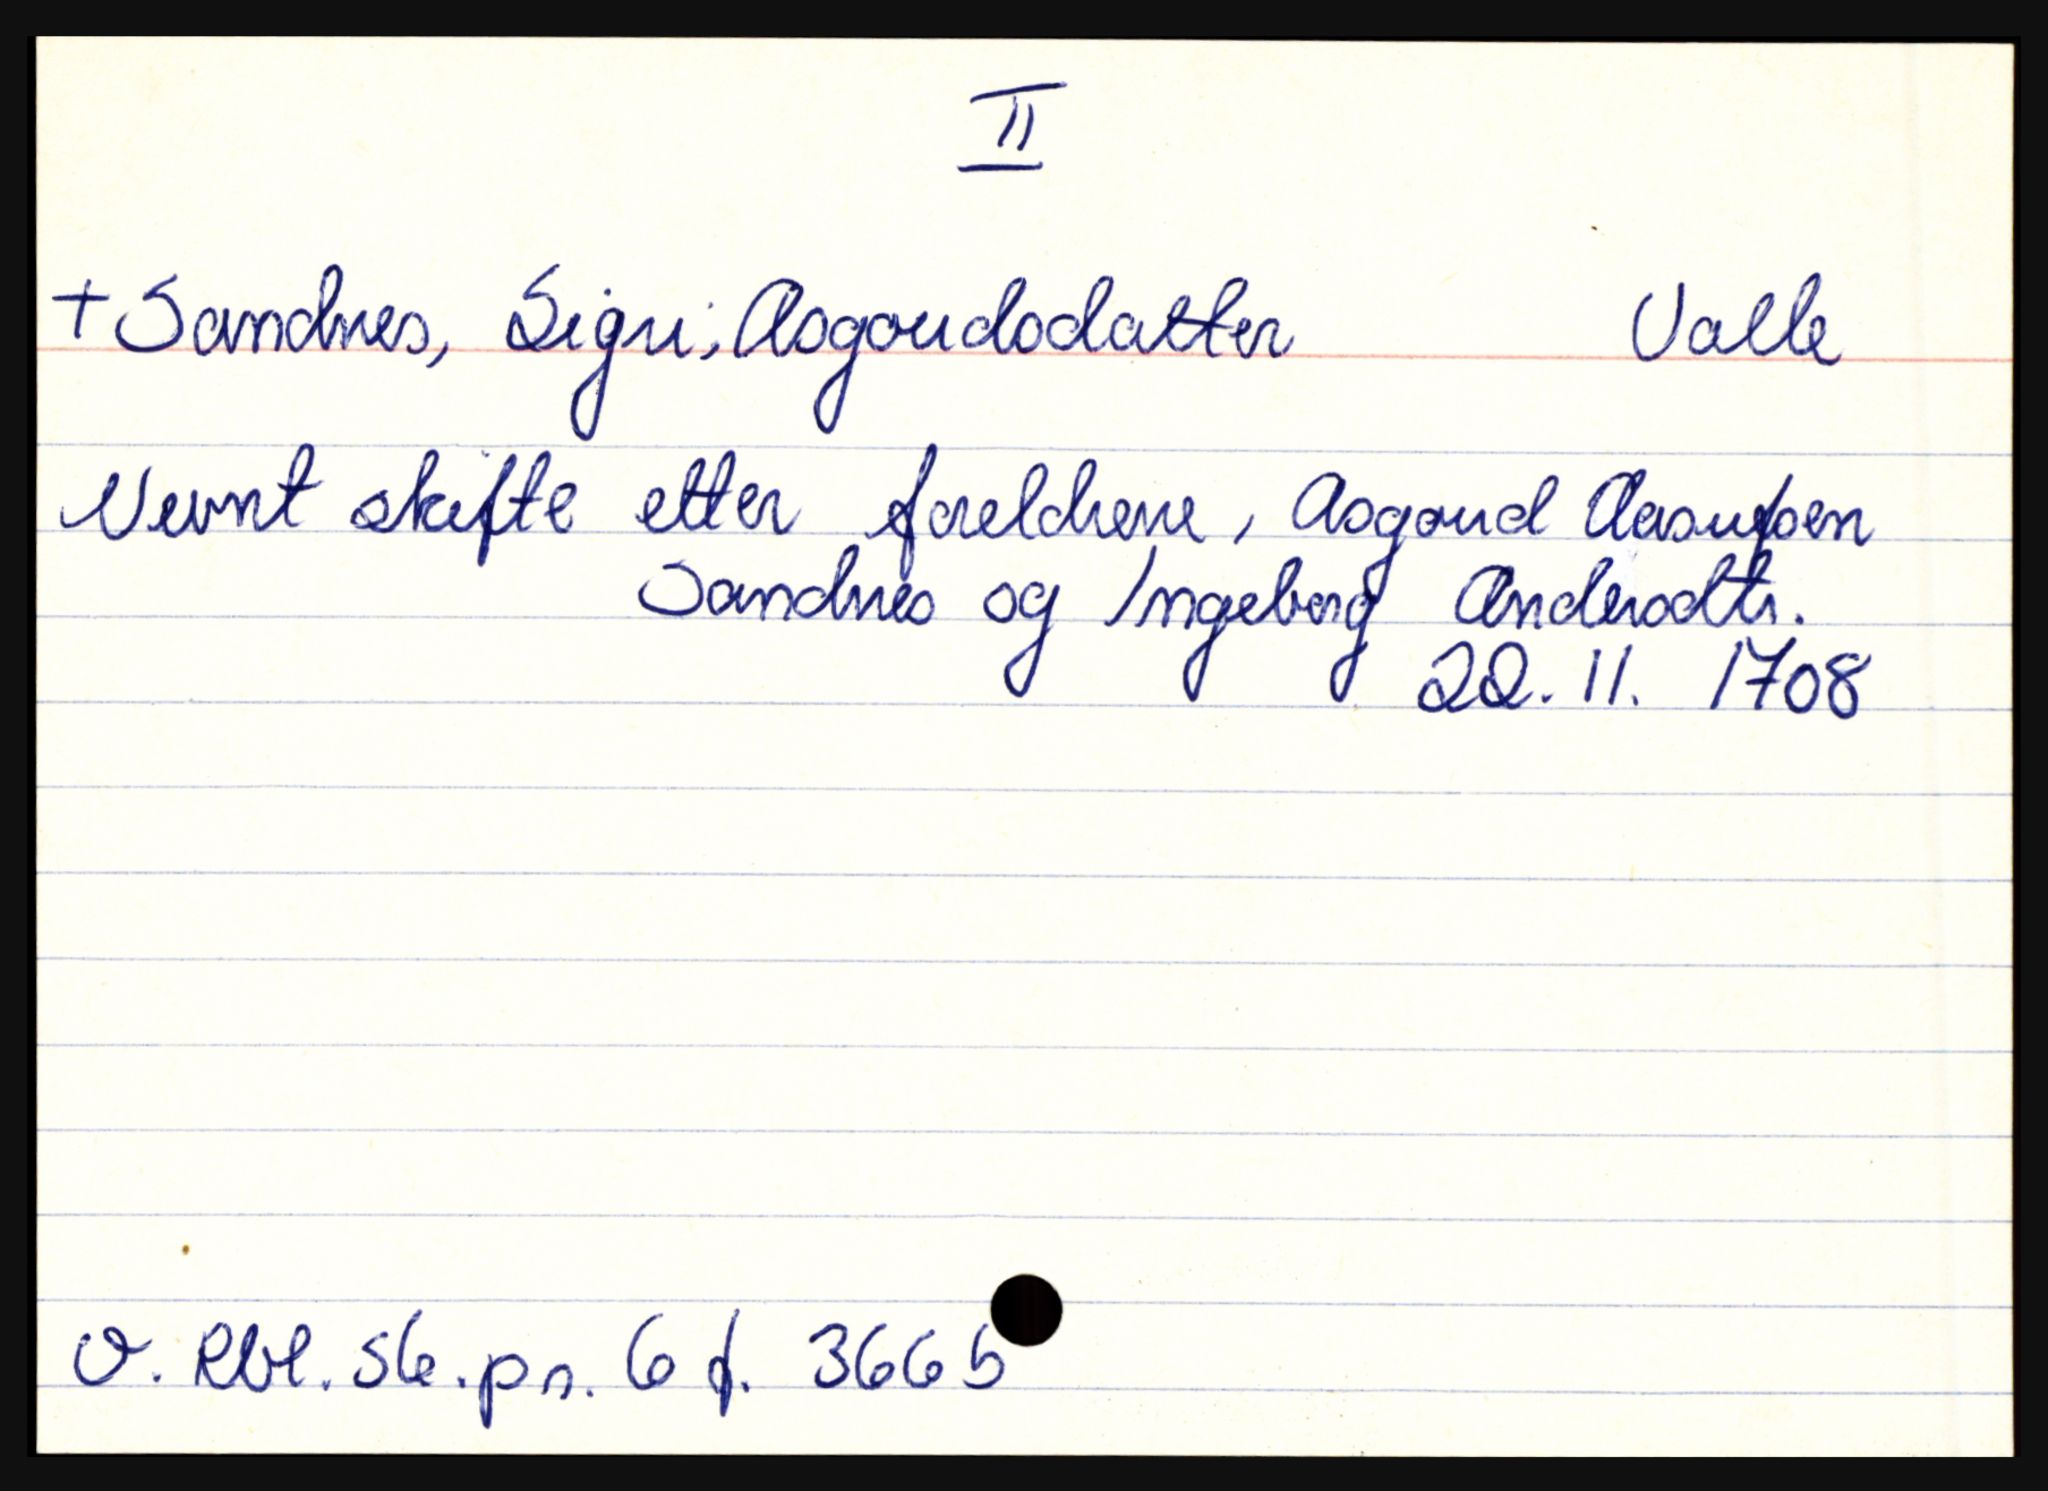 II
+ Sandnes, Sigri, Asgoudsdatter Valle
Nevnt skifte etter foreldrene, Asgoud Aasulfsen
Sandnes og Ingeborg Andersdtr.
22. 11. 1708
O. Rbl. sk. pr. 6 f. 366 b